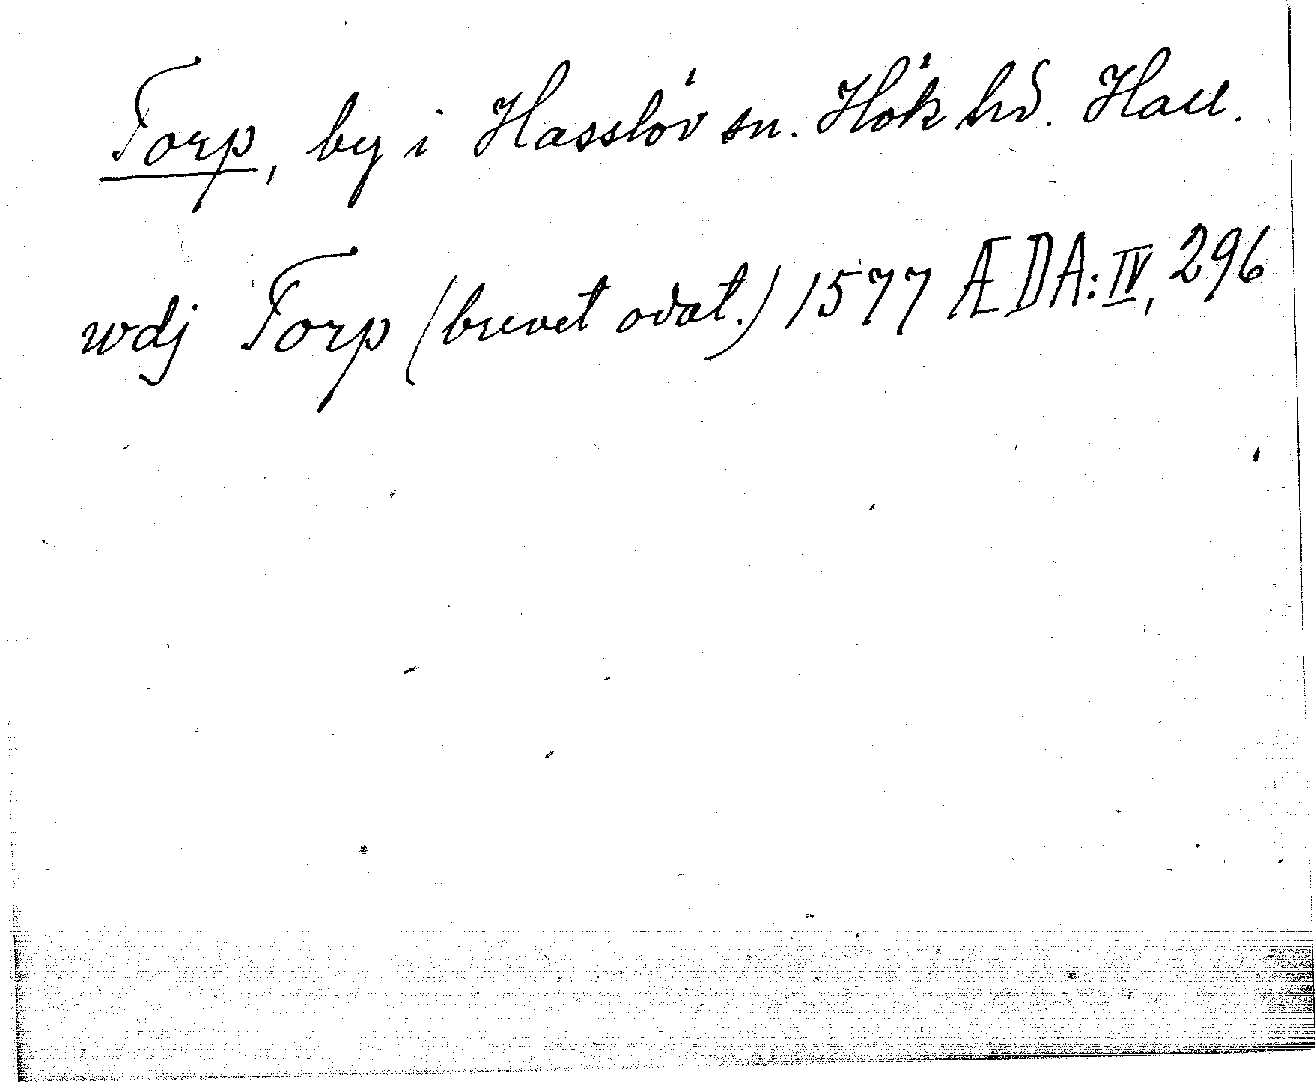 Torp, by i Hasslöv sn. Hök hd. Hall.
wdj Torp (brevet odat.) 1577 ÆDA: IV, 296